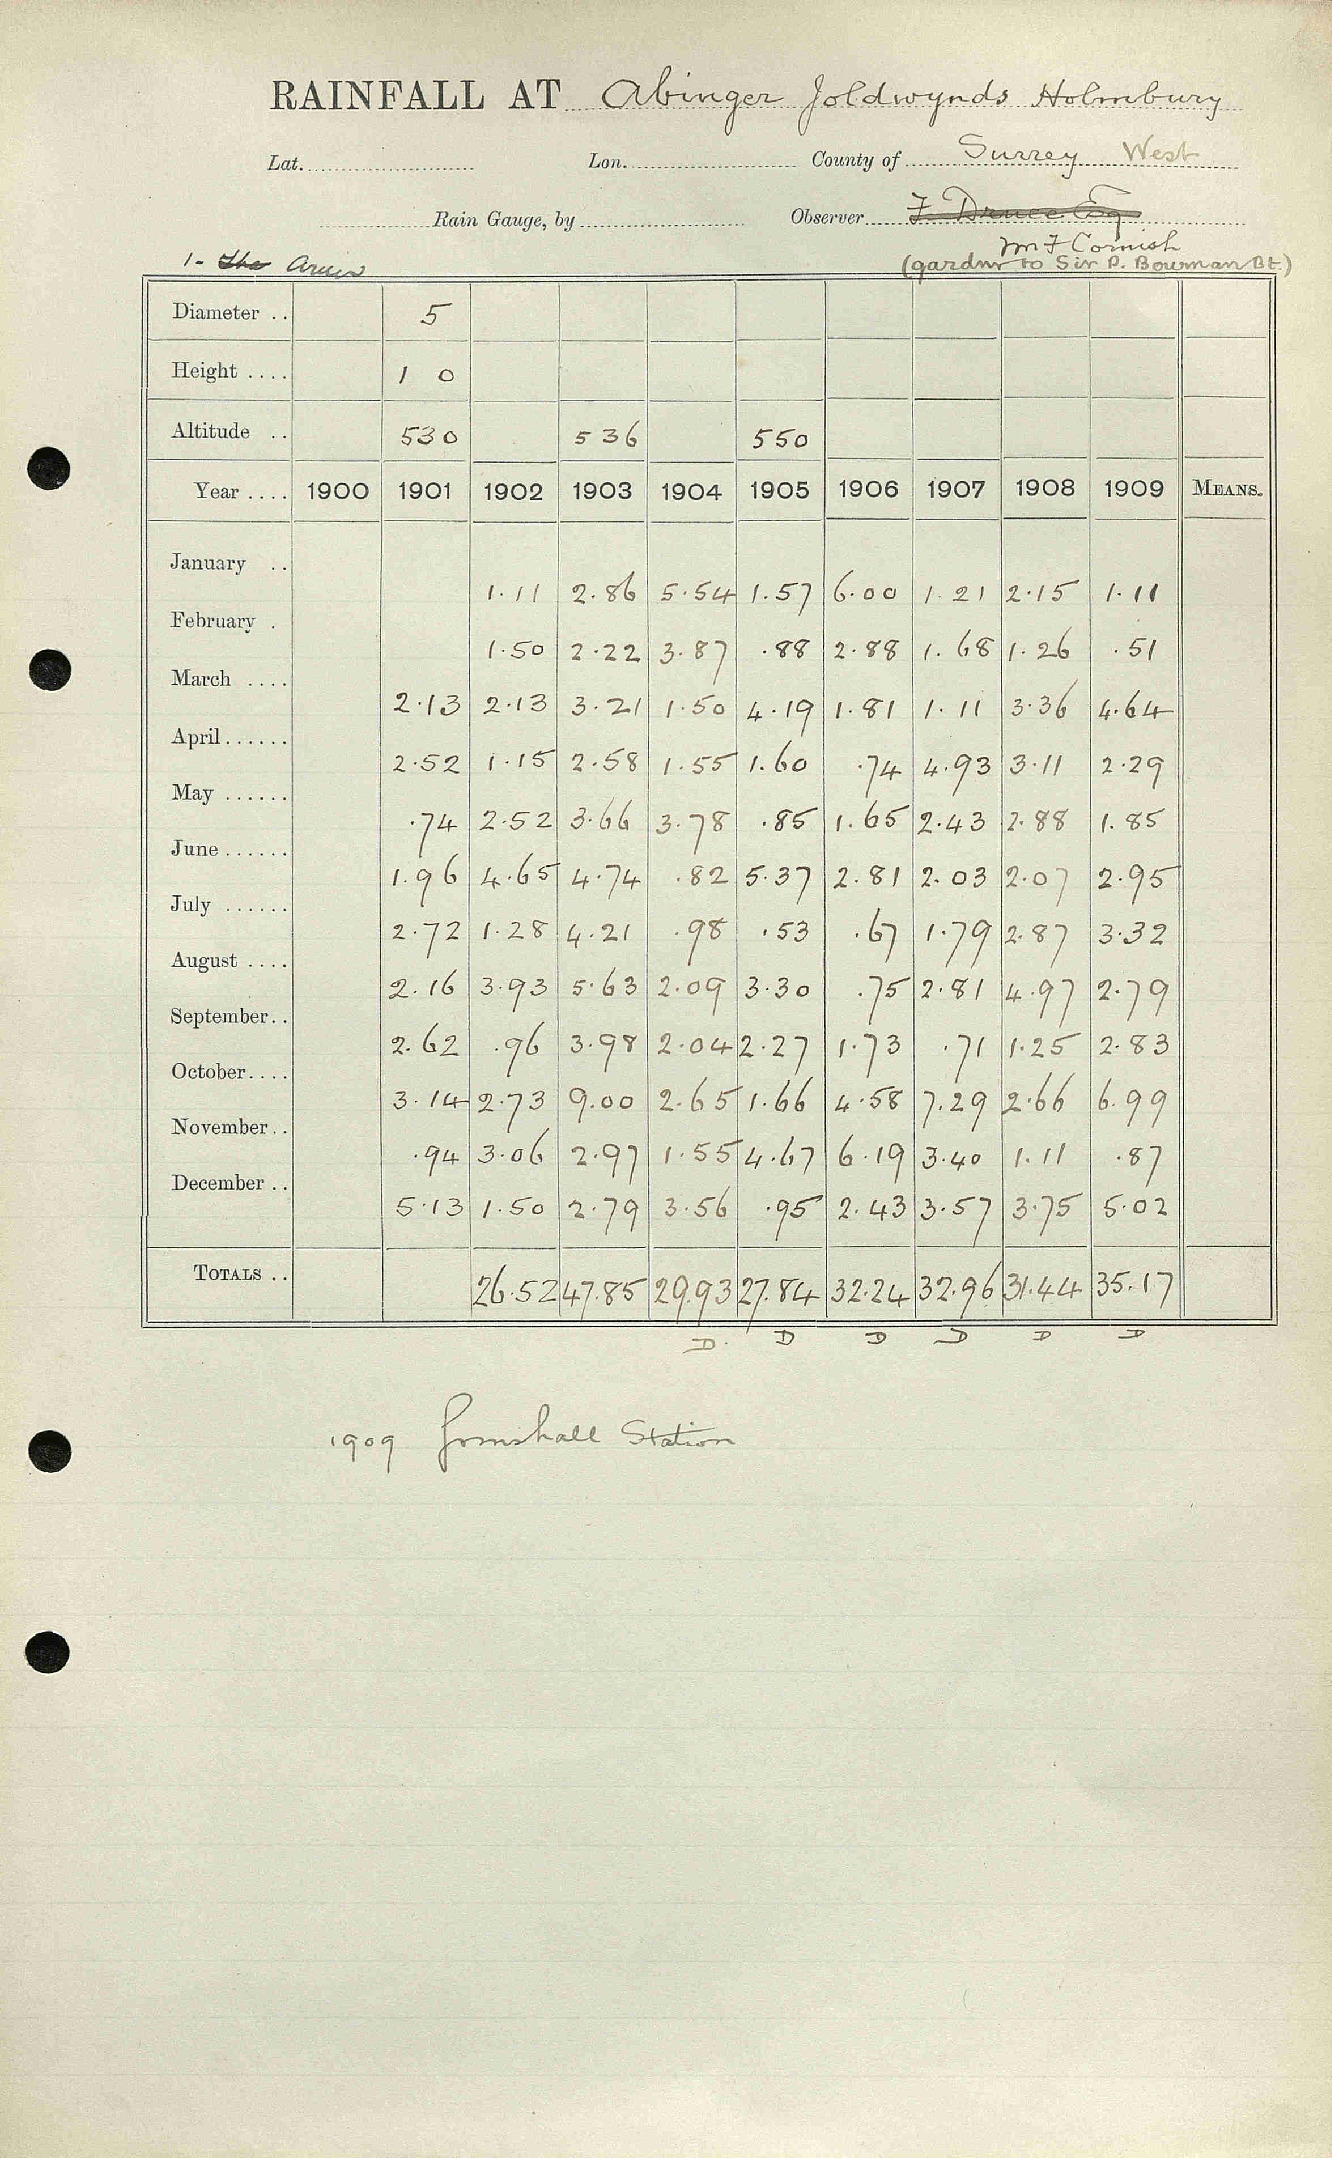 RAINFALL AT Abinger Joldwynds Holmbury
Lat. Lon. County of Surrey West
Rain Gauge, by Observer F. Druce Esq
Mr F Cornish
1- the (gardnr to Sir P. Bowman Bt.)
Diameter .. 5
Height .... 1 0
Altitude .. 530 536 550
Year .... 1900 1901 1902 1903 1904 1905 1906 1907 1908 1909 MEANS.
January .. 1.11 2.86 5.54 1.57 6.00 1.21 2.15 1.11
February . 1.50 2.22 3.87 .88 2.88 1.68 1.26 .51
March .... 2.13 2.13 3.21 1.50 4.19 1.81 1.11 3.36 4.64
April...... 2.52 1.15 2.58 1.55 1.60 .74 4.93 3.11 2.29
May ...... .74 2.52 3.66 3.78 .85 1.65 2.43 2.88 1.85
June...... 1.96 4.65 4.74 .82 5.37 2.81 2.03 2.07 2.95
July ...... 2.72 1.28 4.21 .98 .53 .67 1.79 2.87 3.32
August .... 2.16 3.93 5.63 2.09 3.30 .75 2.81 4.97 2.79
September.. 2.62 .96 3.98 2.04 2.27 1.73 .71 1.25 2.83
October.... 3.14 2.73 9.00 2.65 1.66 4.58 7.29 2.66 6.99
November.. .94 3.06 2.97 1.55 4.67 6.19 3.40 1.11 .87
December .. 5.13 1.50 2.79 3.56 .95 2.43 3.57 3.75 5.02
TOTALS .. 26.52 47.85 29.93 27.84 32.24 32.96 31.44 35.17
D. D D D D D
1909 Gomshall Station